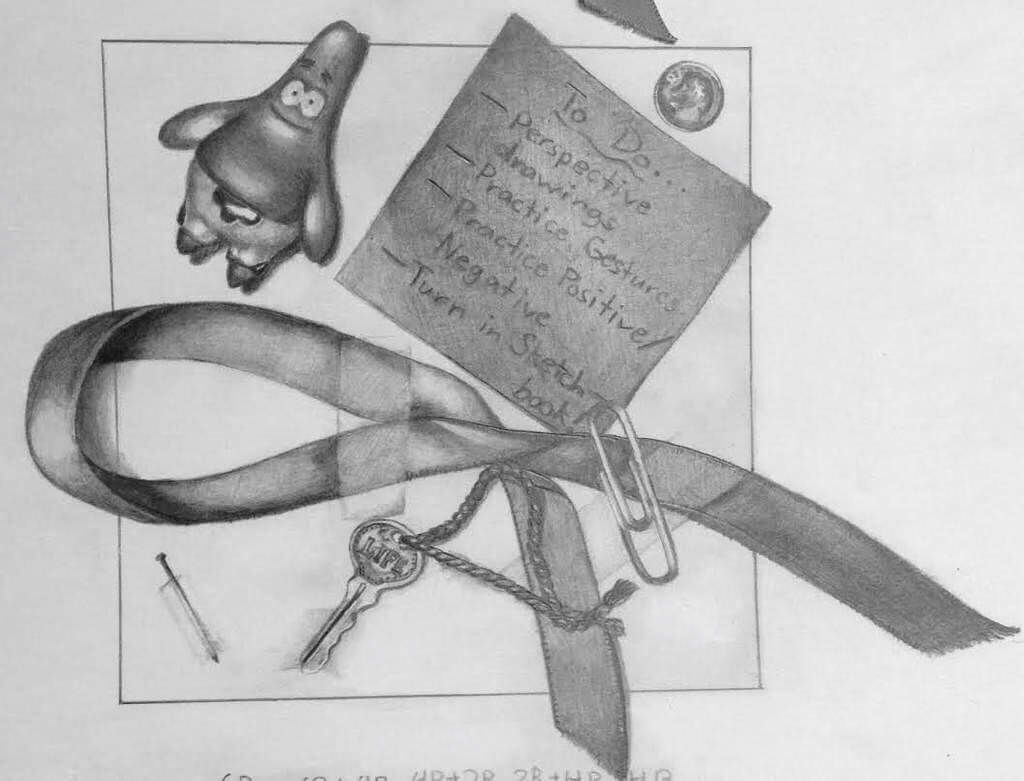 To Do...
- Perspective
drawings
- Practice Gestures
- Practice Positive/
Negative
- Turn in Sketch
book
LIFE